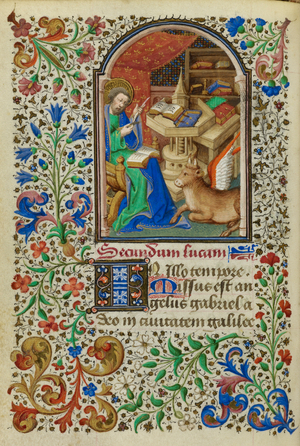 Secundum lucam
IN illo tempore.
Missus est an
gelus gabriel a
deo in civitatem galilee